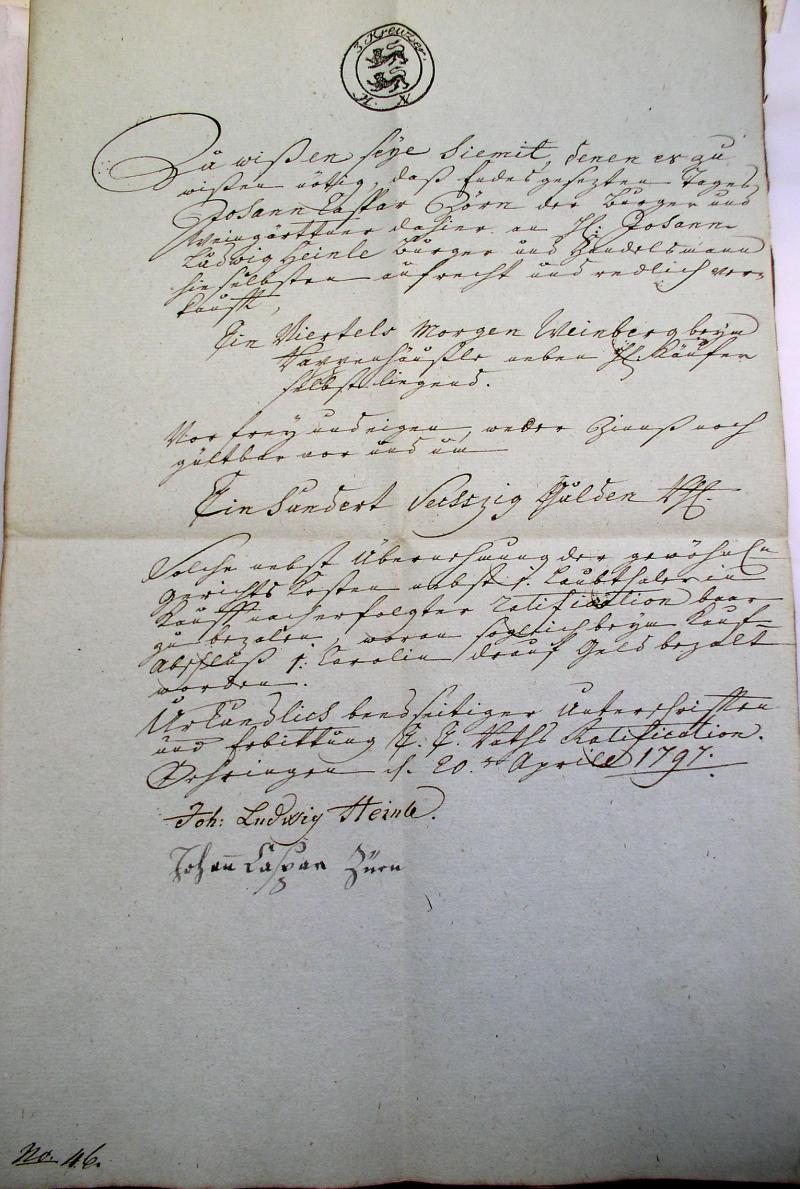 3. Kreuzer.
H. N
Zu wißen seye hiemit, denen es zu
wißen nötig, daß Endesgesezten Tages
Johann Caspar Zörn der Burger und
Weingärttner dahier an H: Johann
Ludwig Heinle Burger und Handelsmann
hieselbsten aufrecht und redlich ver-
kaufft,
Ein Viertels Morgen Weinberg beym
neben H. Käufer
selbst liegend.
Vor frey und eigen, weder Zinnß noch
gültbar vor und um
Ein hundert Sechszig Gulden
Solche nebst Übernehmung der gewöhnln
Gerichts Kosten nebst 1. Laubthaler in
Kauff nach erfolgter Ratification baar
zu bezalen, woran sogleich beym Kauf-
Abschluß 1. Carolin drauf Geld bezalt
worden.
Urkundlich beedseitiger Unterschrifften
und Erbittung Raths Ratification.
Oehringen d. 20.ten Aprill 1797.
Joh: Ludwig Heinle.
Johann Caspar Zürn
No. 46.